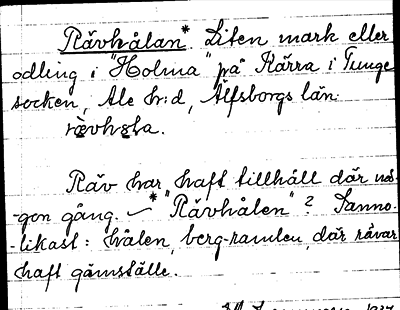 Rävhålan*. Liten mark eller
odling i "Holma" på Kärra i Tunge
socken, Ale h:d, Älfsborgs län.
Räv har haft tillhåll där nå-
-gon gång. * "Rävhålen"? Sanno-
-likast: hålen, berg-ramlen, där rävar
haft gömställe.